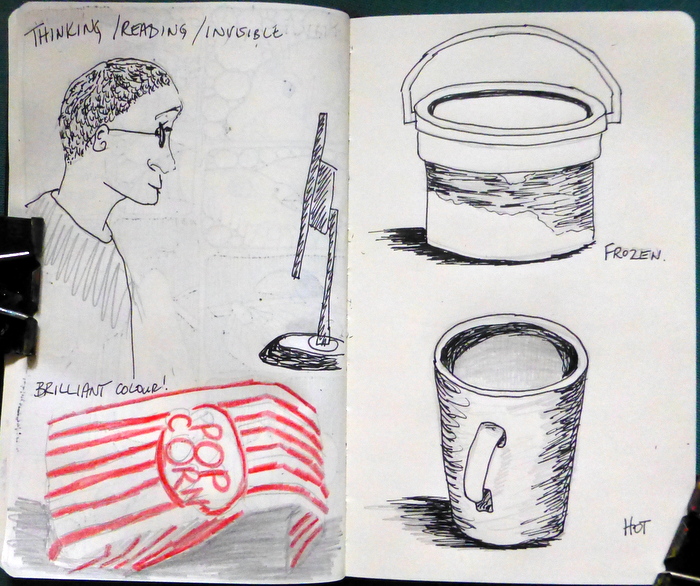 THINKING / READING / INVISIBLE
BRILLIANT COLOUR!
POP
CORN
FROZEN.
HOT